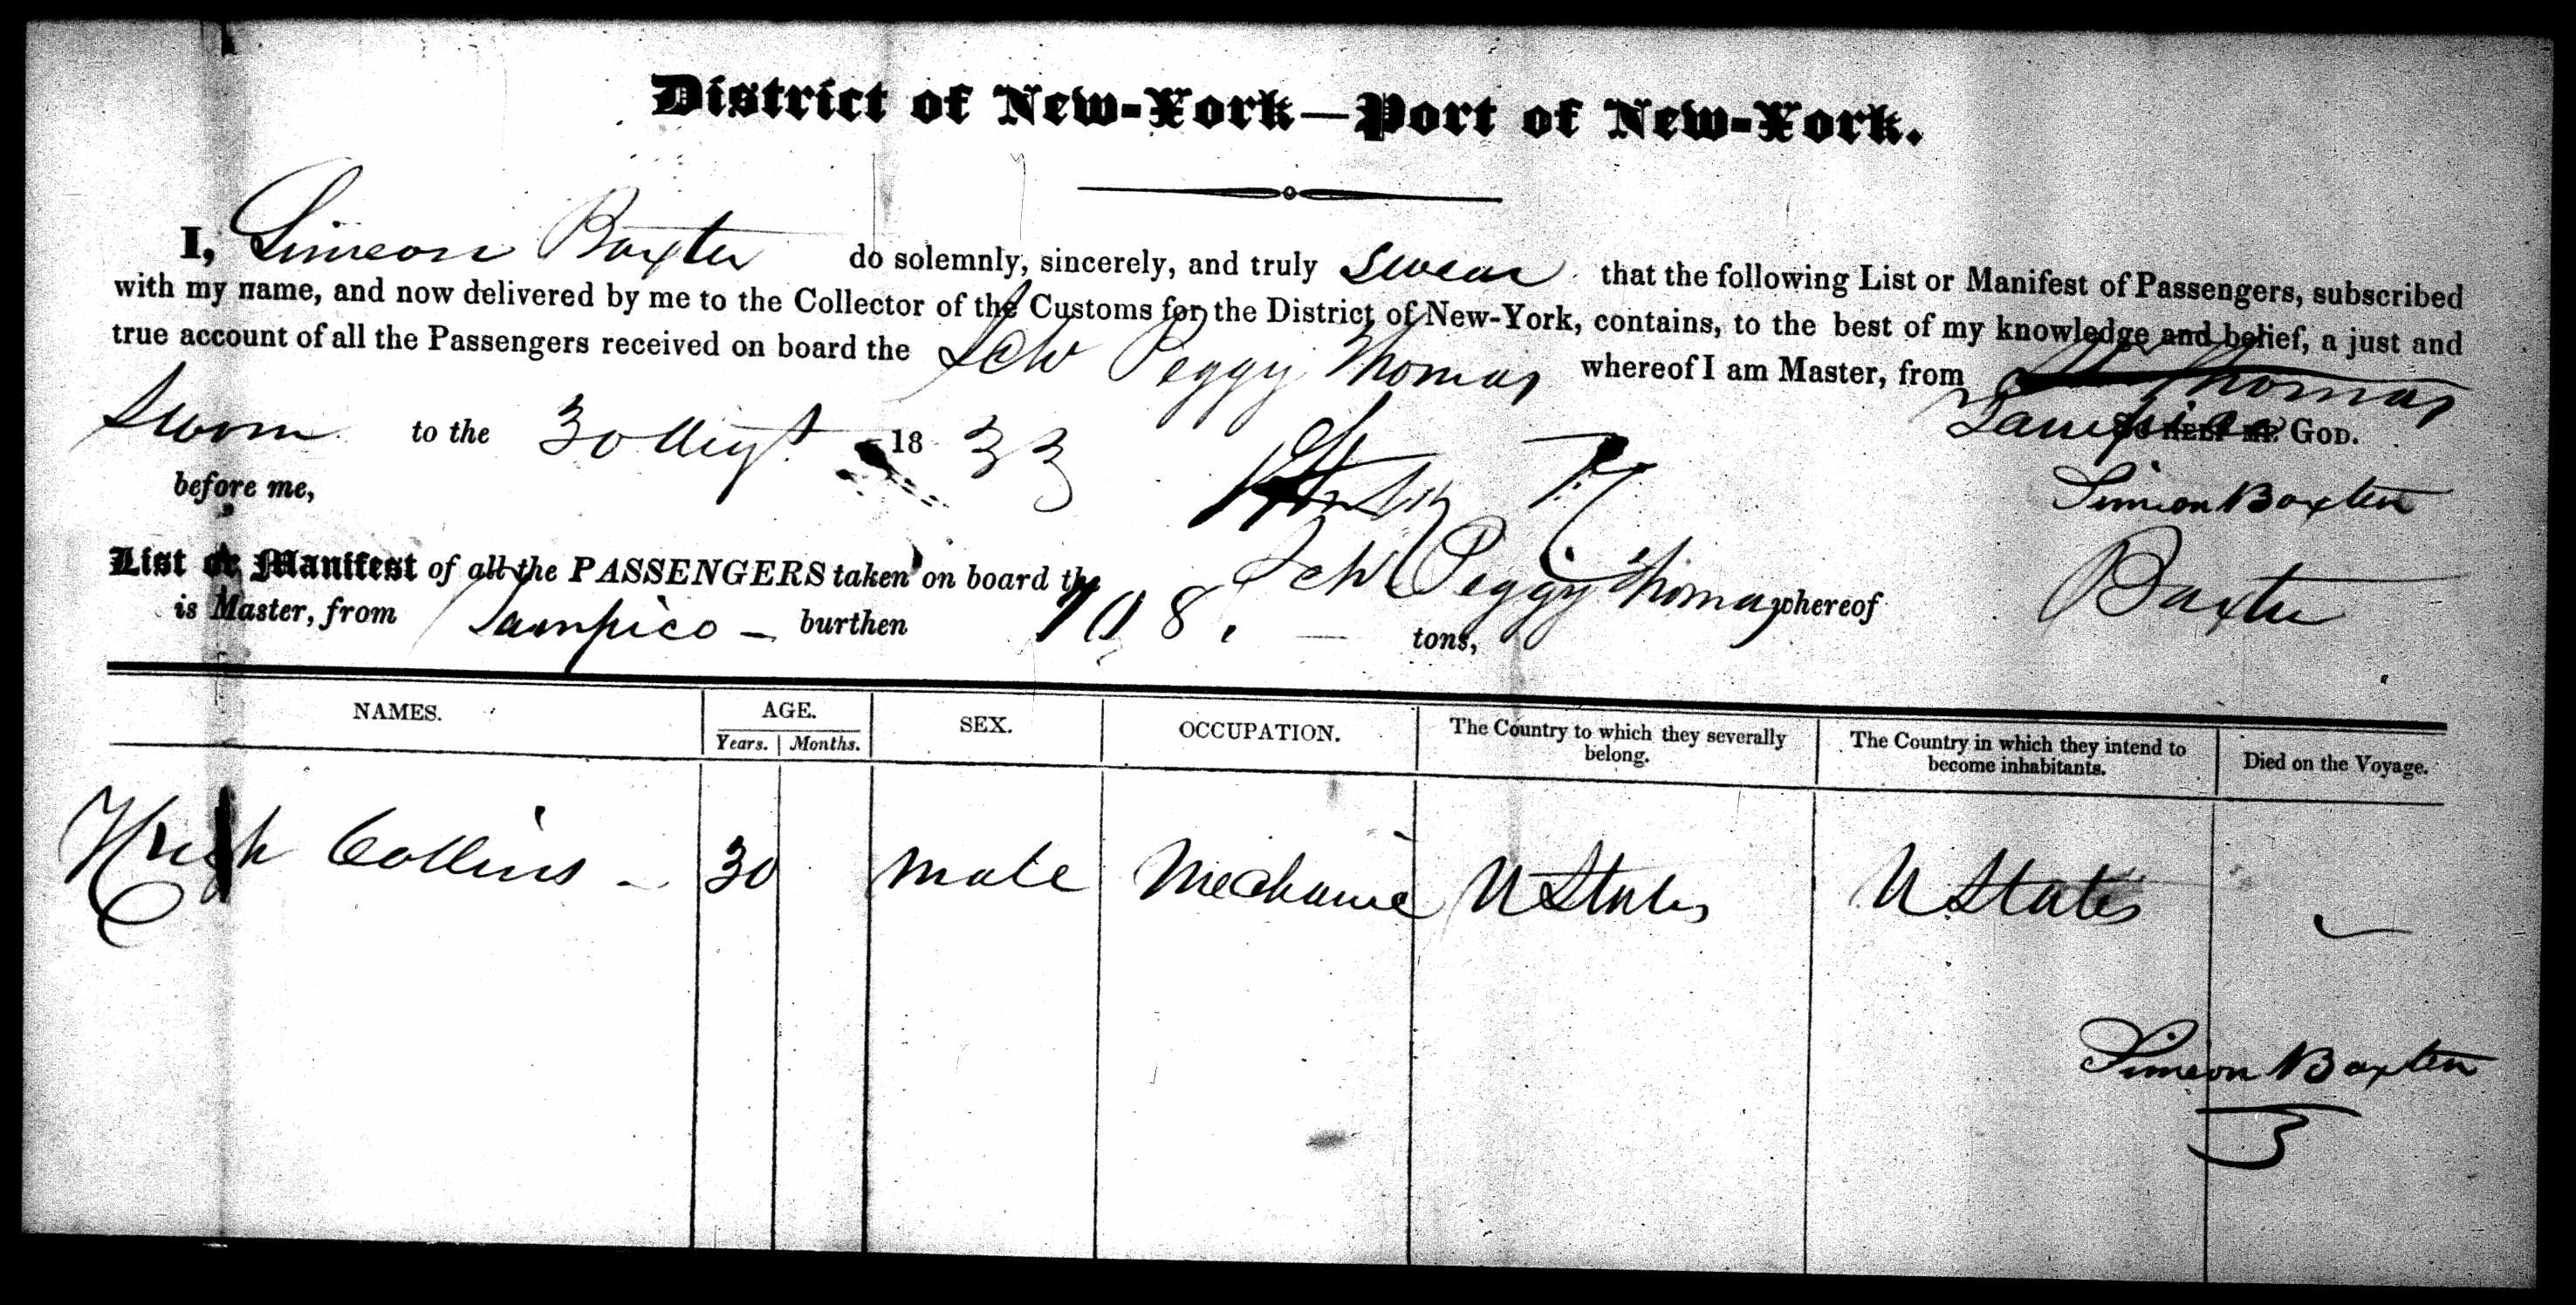 District of New-York—Port of New-York.
I, Simeon Baxter do solemnly, sincerely, and truly swear that the following List or Manifest of Passengers, subscribed
with my name, and now delivered by me to the Collector of the Customs for the District of New-York, contains, to the best of my knowledge and belief, a just and
true account of all the Passengers received on board the Sch Peggy Thomas whereof I am Master, from St Thomas
Tampico
Sworn to the 30 Augt 1833 So help me God.
before me, Simeon Baxter
List or Manifest of all the PASSENGERS taken on board the Sch Peggy Thomas whereof Baxter
is Master, from Tampico — burthen 108. — tons,
NAMES. AGE. SEX. OCCUPATION. The Country to which they severally belong. The Country in which they intend to become inhabitants. Died on the Voyage.
Years. Months.
Hugh Collins — 30 male Mechanic U States U States
Simeon Baxter